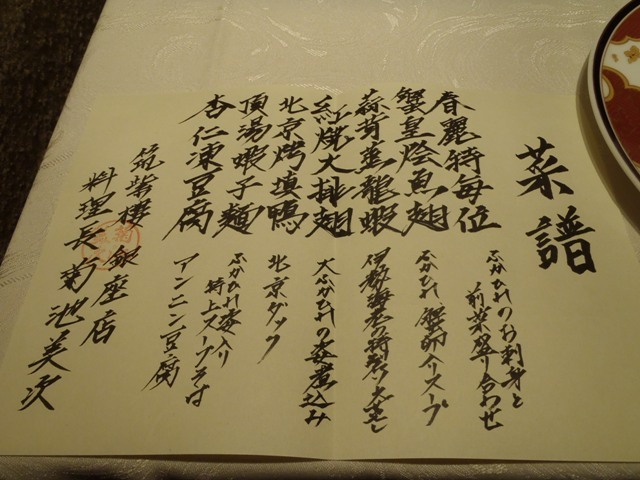 菜譜
春麗特每位
ふかひれのお刺身と
前菜盛り合わせ
蟹皇烩魚翅
ふかひれ蟹卵入りスープ
蒜茸蒸龍蝦
伊勢海老の特製大蒜蒸し
紅燒大排翅
大ふかひれの姿煮込み
北京烤填鴨
北京ダック
頂湯蝦子麵
ふかひれ姿入り
特上スープそば
杏仁凍豆腐
アンニン豆腐
筑紫樓銀座店
料理長菊池美次